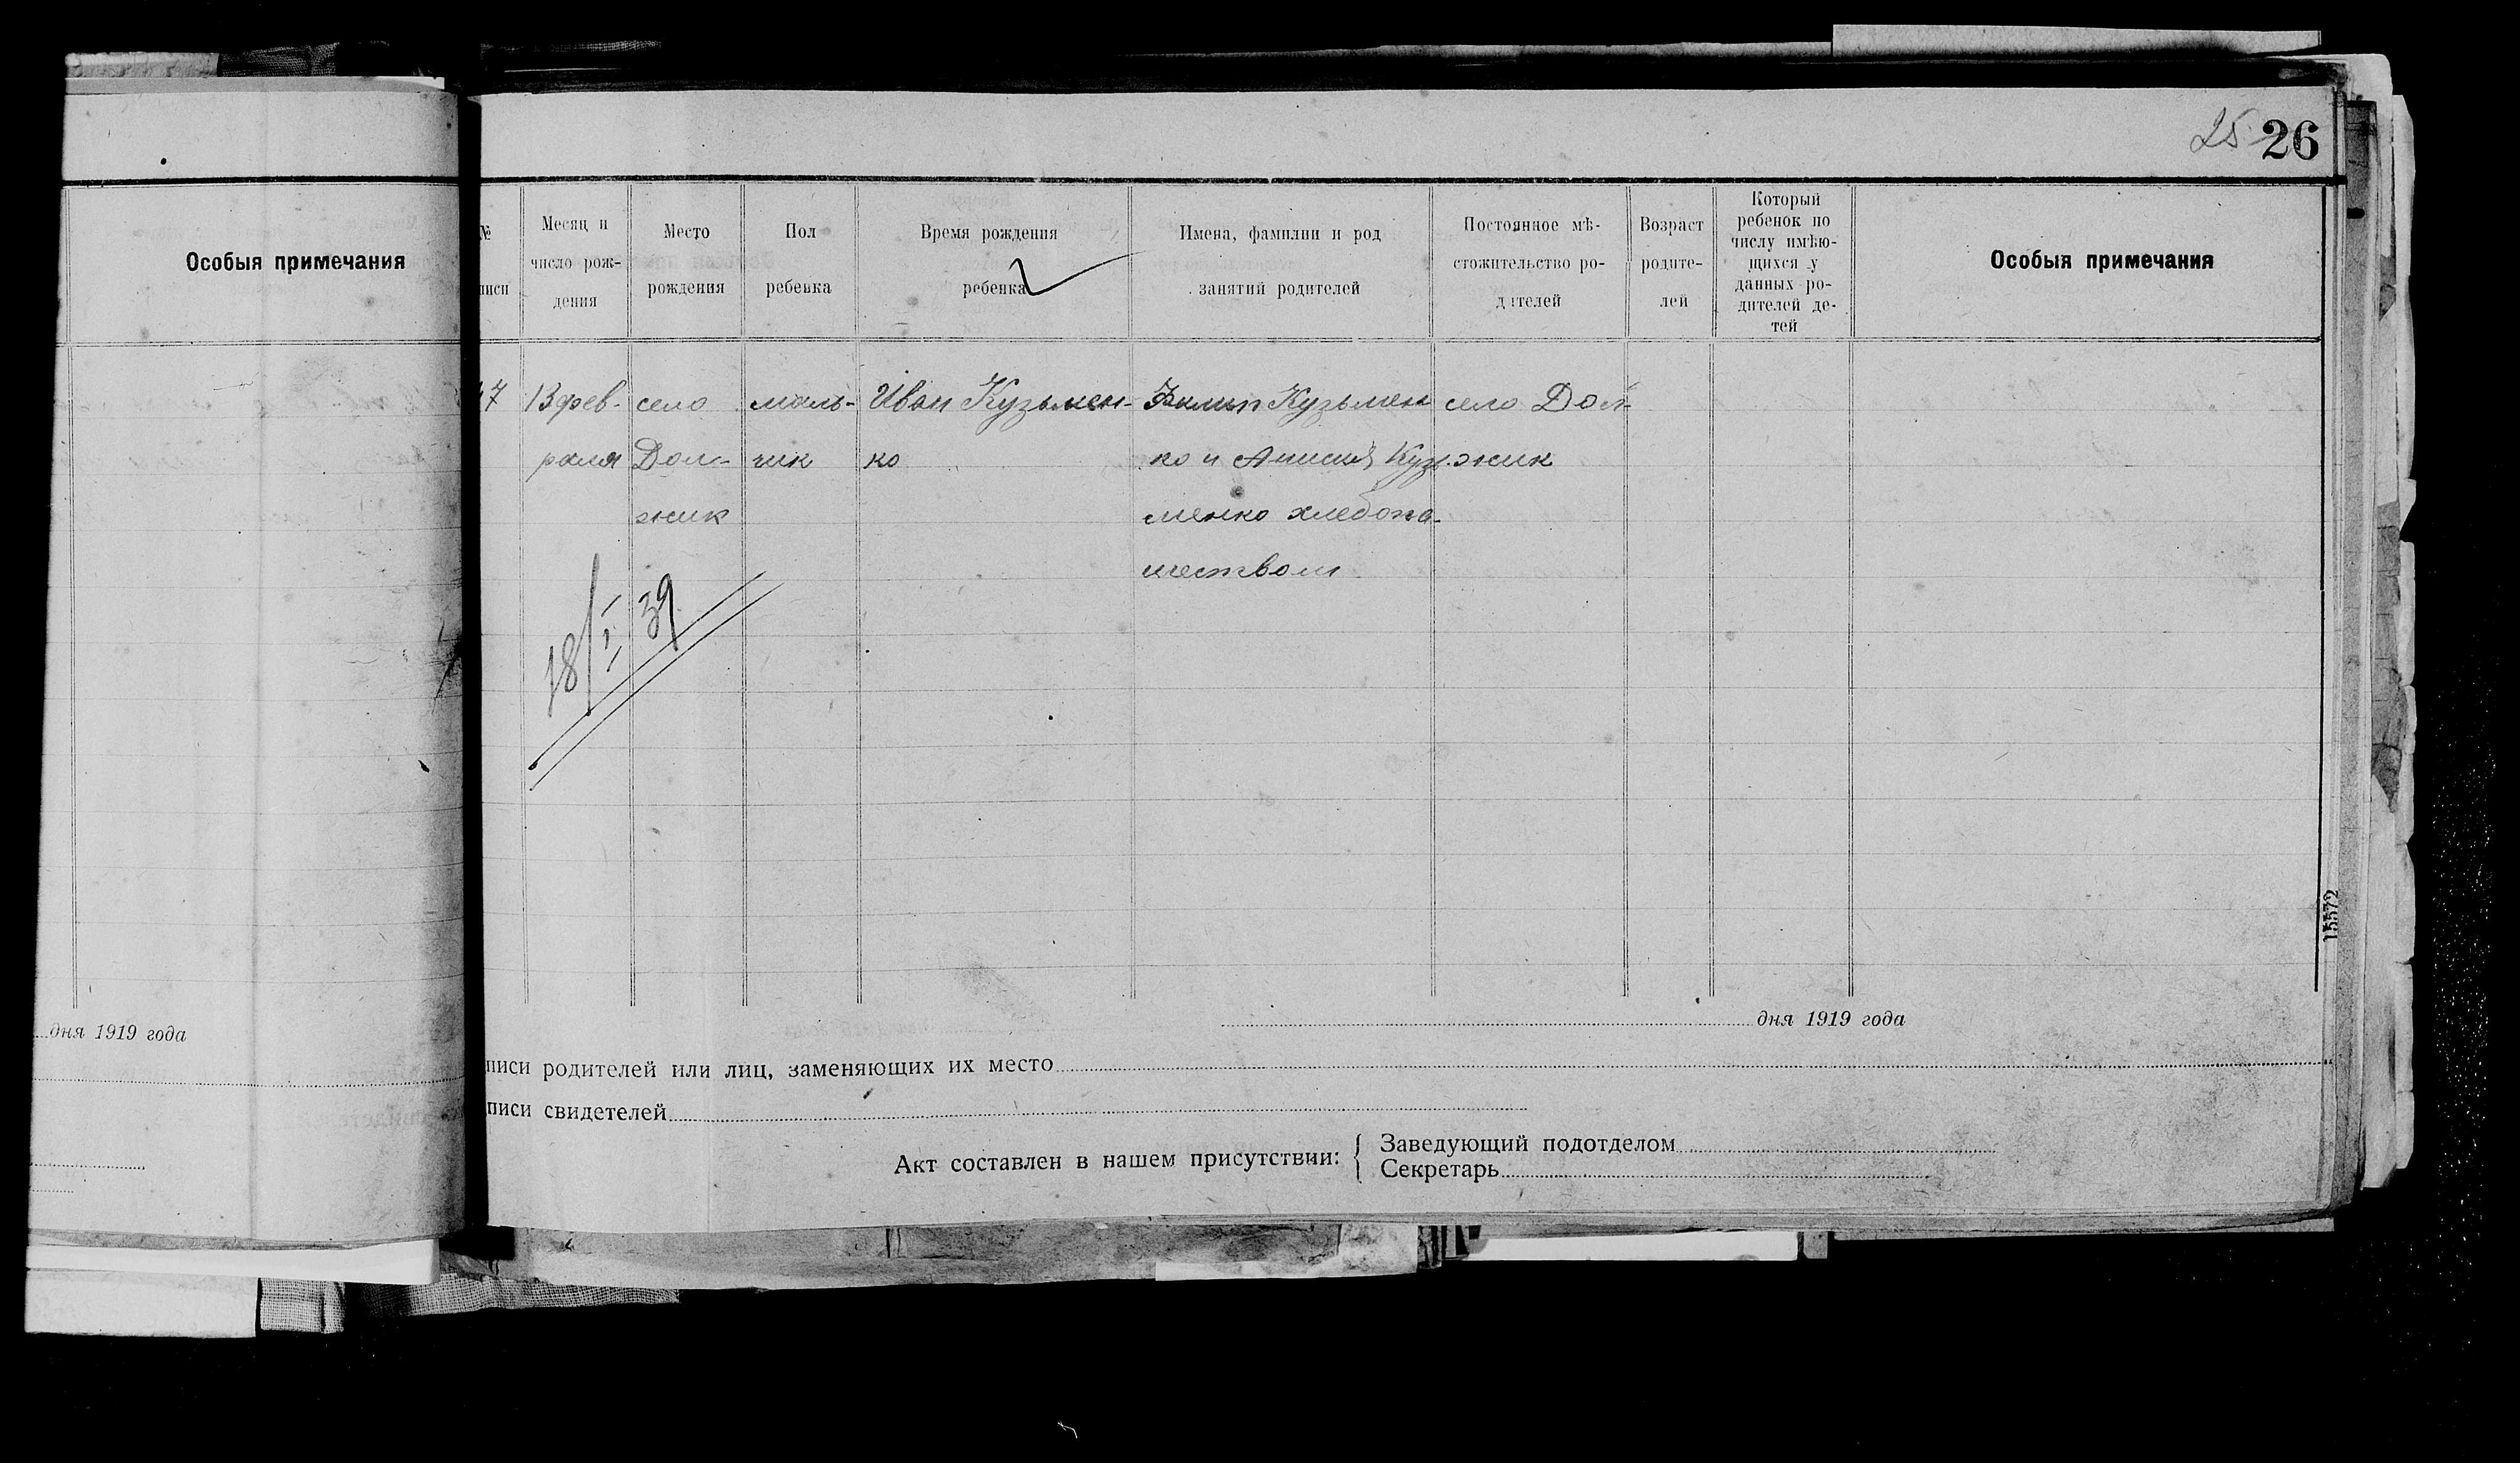 25 26
Особыя примечания
№
писи
Месяц и
число рож-
дения
Место
рождения
Пол
ребенка
Время рождения
ребенка
Имена, фамилии и род
занятий родителей
Постоянное мѣ-
стожительство ро-
дителей
Возраст
родите-
лей
Который
ребенок по
числу имѣю-
щихся у
данных ро-
дителей де-
тей
Особыя примечания
7 13 фев- село маль- Иван Кузьмен- Филип Кузьмен село Дол-
раля Дол- чик ко ко и Анисия Кузь жик
жик менко хлебопа-
шеством
18/I 39
15572
дня 1919 года
дня 1919 года
писи родителей или лиц, заменяющих их место
писи свидетелей
Акт составлен в нашем присутствии: { Заведующий подотделом
Секретарь